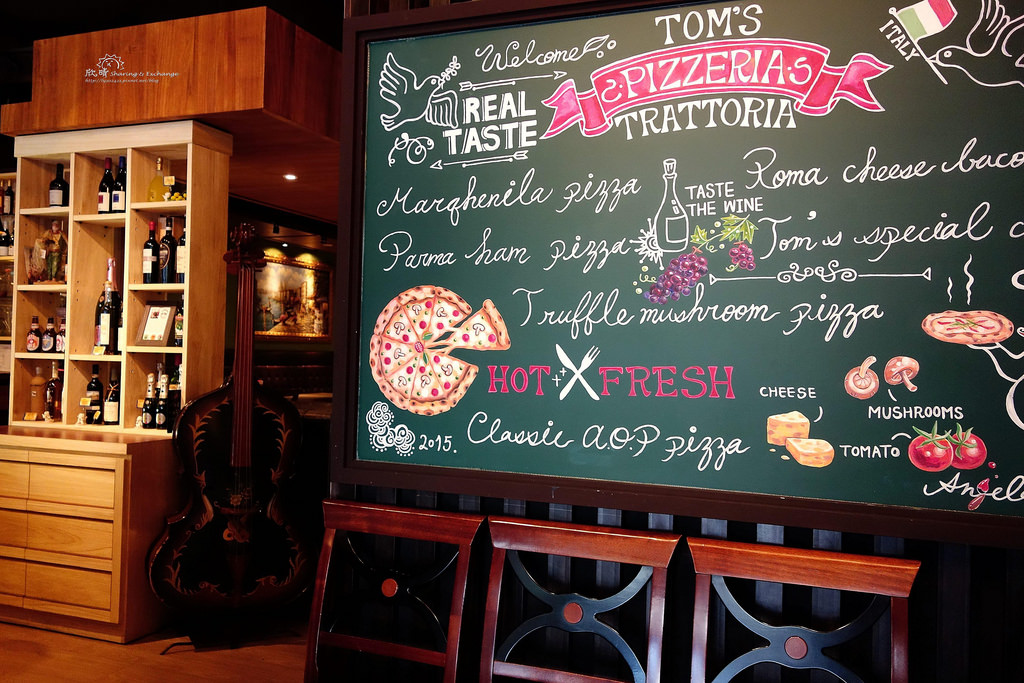 欣晴 Sharing & Exchange
Welcome
TOM'S
PIZZERIA
TRATTORIA
ITALY
REAL
TASTE
Marghenila pizza
TASTE
THE WINE
Roma cheese baco
Parma ham pizza
Tom's special c
Truffle mushroom pizza
HOT FRESH
CHEESE
MUSHROOMS
TOMATO
2015.
Classic A.O.P pizza
Angel